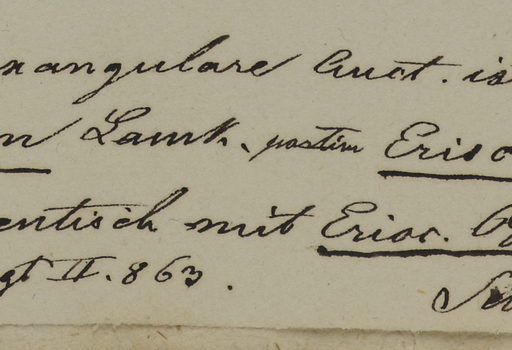 xangulare Auct. is
m Lamk. partim Erio
entisch mit Erioc.
gt II. 863.